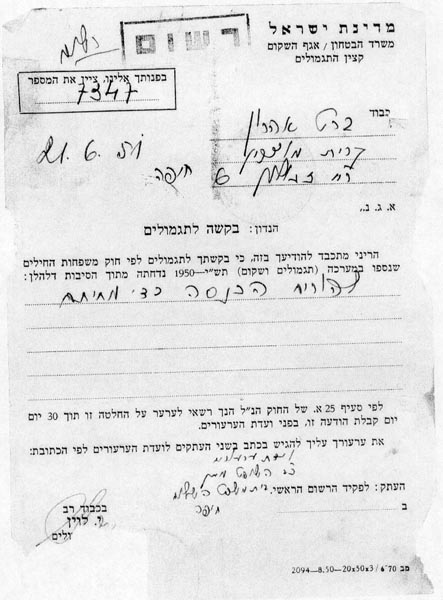 רשום
מדינת ישראל
משרד הבטחון / אגף השקום
קצין התגמולים
בפנותך אלינו, ציין את המספר
7347
לכבוד
ברט אהרון
קרית מוצקין
חיפה
א. ג. נ.,
הנדון: בקשה לתגמולים
הריני מתכבד להודיעך בזה, כי בקשתך לתגמולים לפי חוק משפחות החילים
שנספו במערכה (תגמולים ושקום) תש"י—1950 נדחתה מתוך הסיבות דלהלן:
להוריו הכנסה כדי מחיתם
לפי סעיף 25 א. של החוק הנ"ל הנך רשאי לערער על החלטה זו תוך 30 יום
יום קבלת הודעה זו, בפני ועדת הערעורים.
את ערעורך עליך להגיש בכתב בשני העתקים לועדת הערעורים לפי הכתובת:
ועדת ערעורים
העתק: לפקיד הרשום הראשי, בית משפט השלום
ב חיפה
בכבוד רב
י. לוין
מב 70/6 2094—8.50—20x50x3